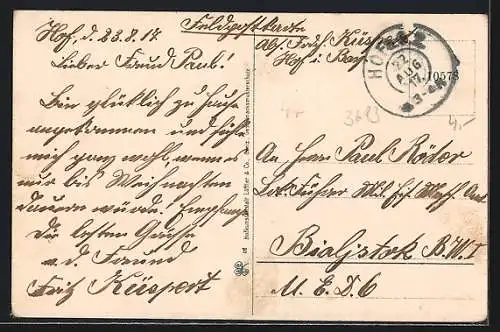 Hof, d. 23.8.17.
Lieber Freund Paul!
Bin glücklich zu Hause
angekommen und fühle
mich ganz wohl, wenn es
nur bis Weihnachten
dauern würde. Empfange
Die besten Grüße
v. d. Freund
Fritz Küspert
Feldpostkarte
Abs. Küspert
Hof i. Bay.
HOF
22
AUG
17
10578
3623
4,-
An Herrn Paul Röder
Bialystok B.W.I
M. E. D. 6